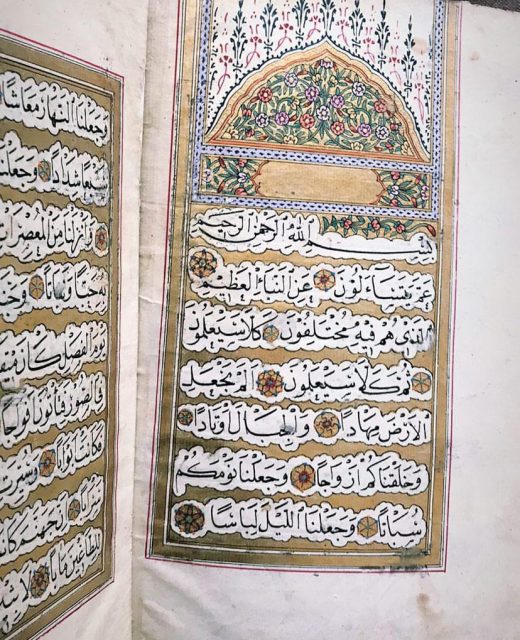 بِسْمِ اللهِ الرَّحْمٰنِ الرَّحِيمِ
عَمَّ يَتَسَاءَلُونَ عَنِ النَّبَاِ الْعَظِيمِ
الَّذِى هُمْ فِيهِ مُخْتَلِفُونَ كَلَّا سَيَعْلَمُونَ
ثُمَّ كَلَّا سَيَعْلَمُونَ اَلَمْ نَجْعَلِ
الْاَرْضَ مِهَادًا وَالْجِبَالَ اَوْتَادًا
وَخَلَقْنَاكُمْ اَزْوَاجًا وَجَعَلْنَا نَوْمَكُمْ
سُبَاتًا وَجَعَلْنَا الَّيْلَ لِبَاسًا
وَجَعَلْنَا النَّهَارَ مَعَاشًا
سَبْعًا شِدَادًا وَجَعَلْنَا
وَاَنْزَلْنَا مِنَ الْمُعْصِرَاتِ
بِهِ حَبًّا وَنَبَاتًا
يَوْمَ الْفَصْلِ كَانَ
فِى الصُّورِ فَتَأْتُونَ اَفْوَاجًا
فَكَانَتْ اَبْوَابًا وَسُيِّرَتِ
سَرَابًا اِنَّ جَهَنَّمَ كَانَتْ
لِلطَّاغِينَ مَاٰبًا